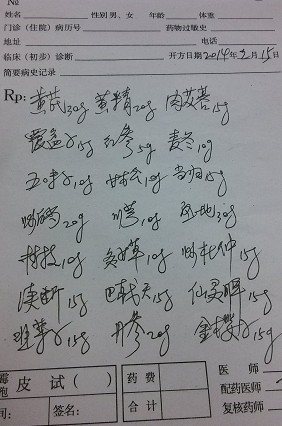 №
姓名 性别 男、女 年龄 体重
门诊（住院）病历号 药物过敏史
地址 电话
临床（初步）诊断 开方日期2014年2月15日
简要病史记录
Rp: 黄芪30g 黄精20g 肉苁蓉15g
覆盆子15g 红参5g 麦冬10g
五味子10g 10g 当归15g
20g 川芎10g 30g
10g 10g 炒杜仲15g
续断15g 巴戟天15g 仙灵脾15g
菟丝子15g 丹参20g 金樱子15g
皮试（ ） 药费 医师
签名： 合计 配药医师
复核药师